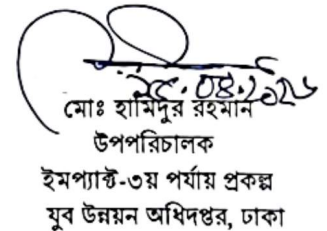 মোঃ হামিদুর রহমান
উপপরিচালক
ইমপ্যাক্ট-৩য় পর্যায় প্রকল্প
যুব উন্নয়ন অধিদপ্তর, ঢাকা